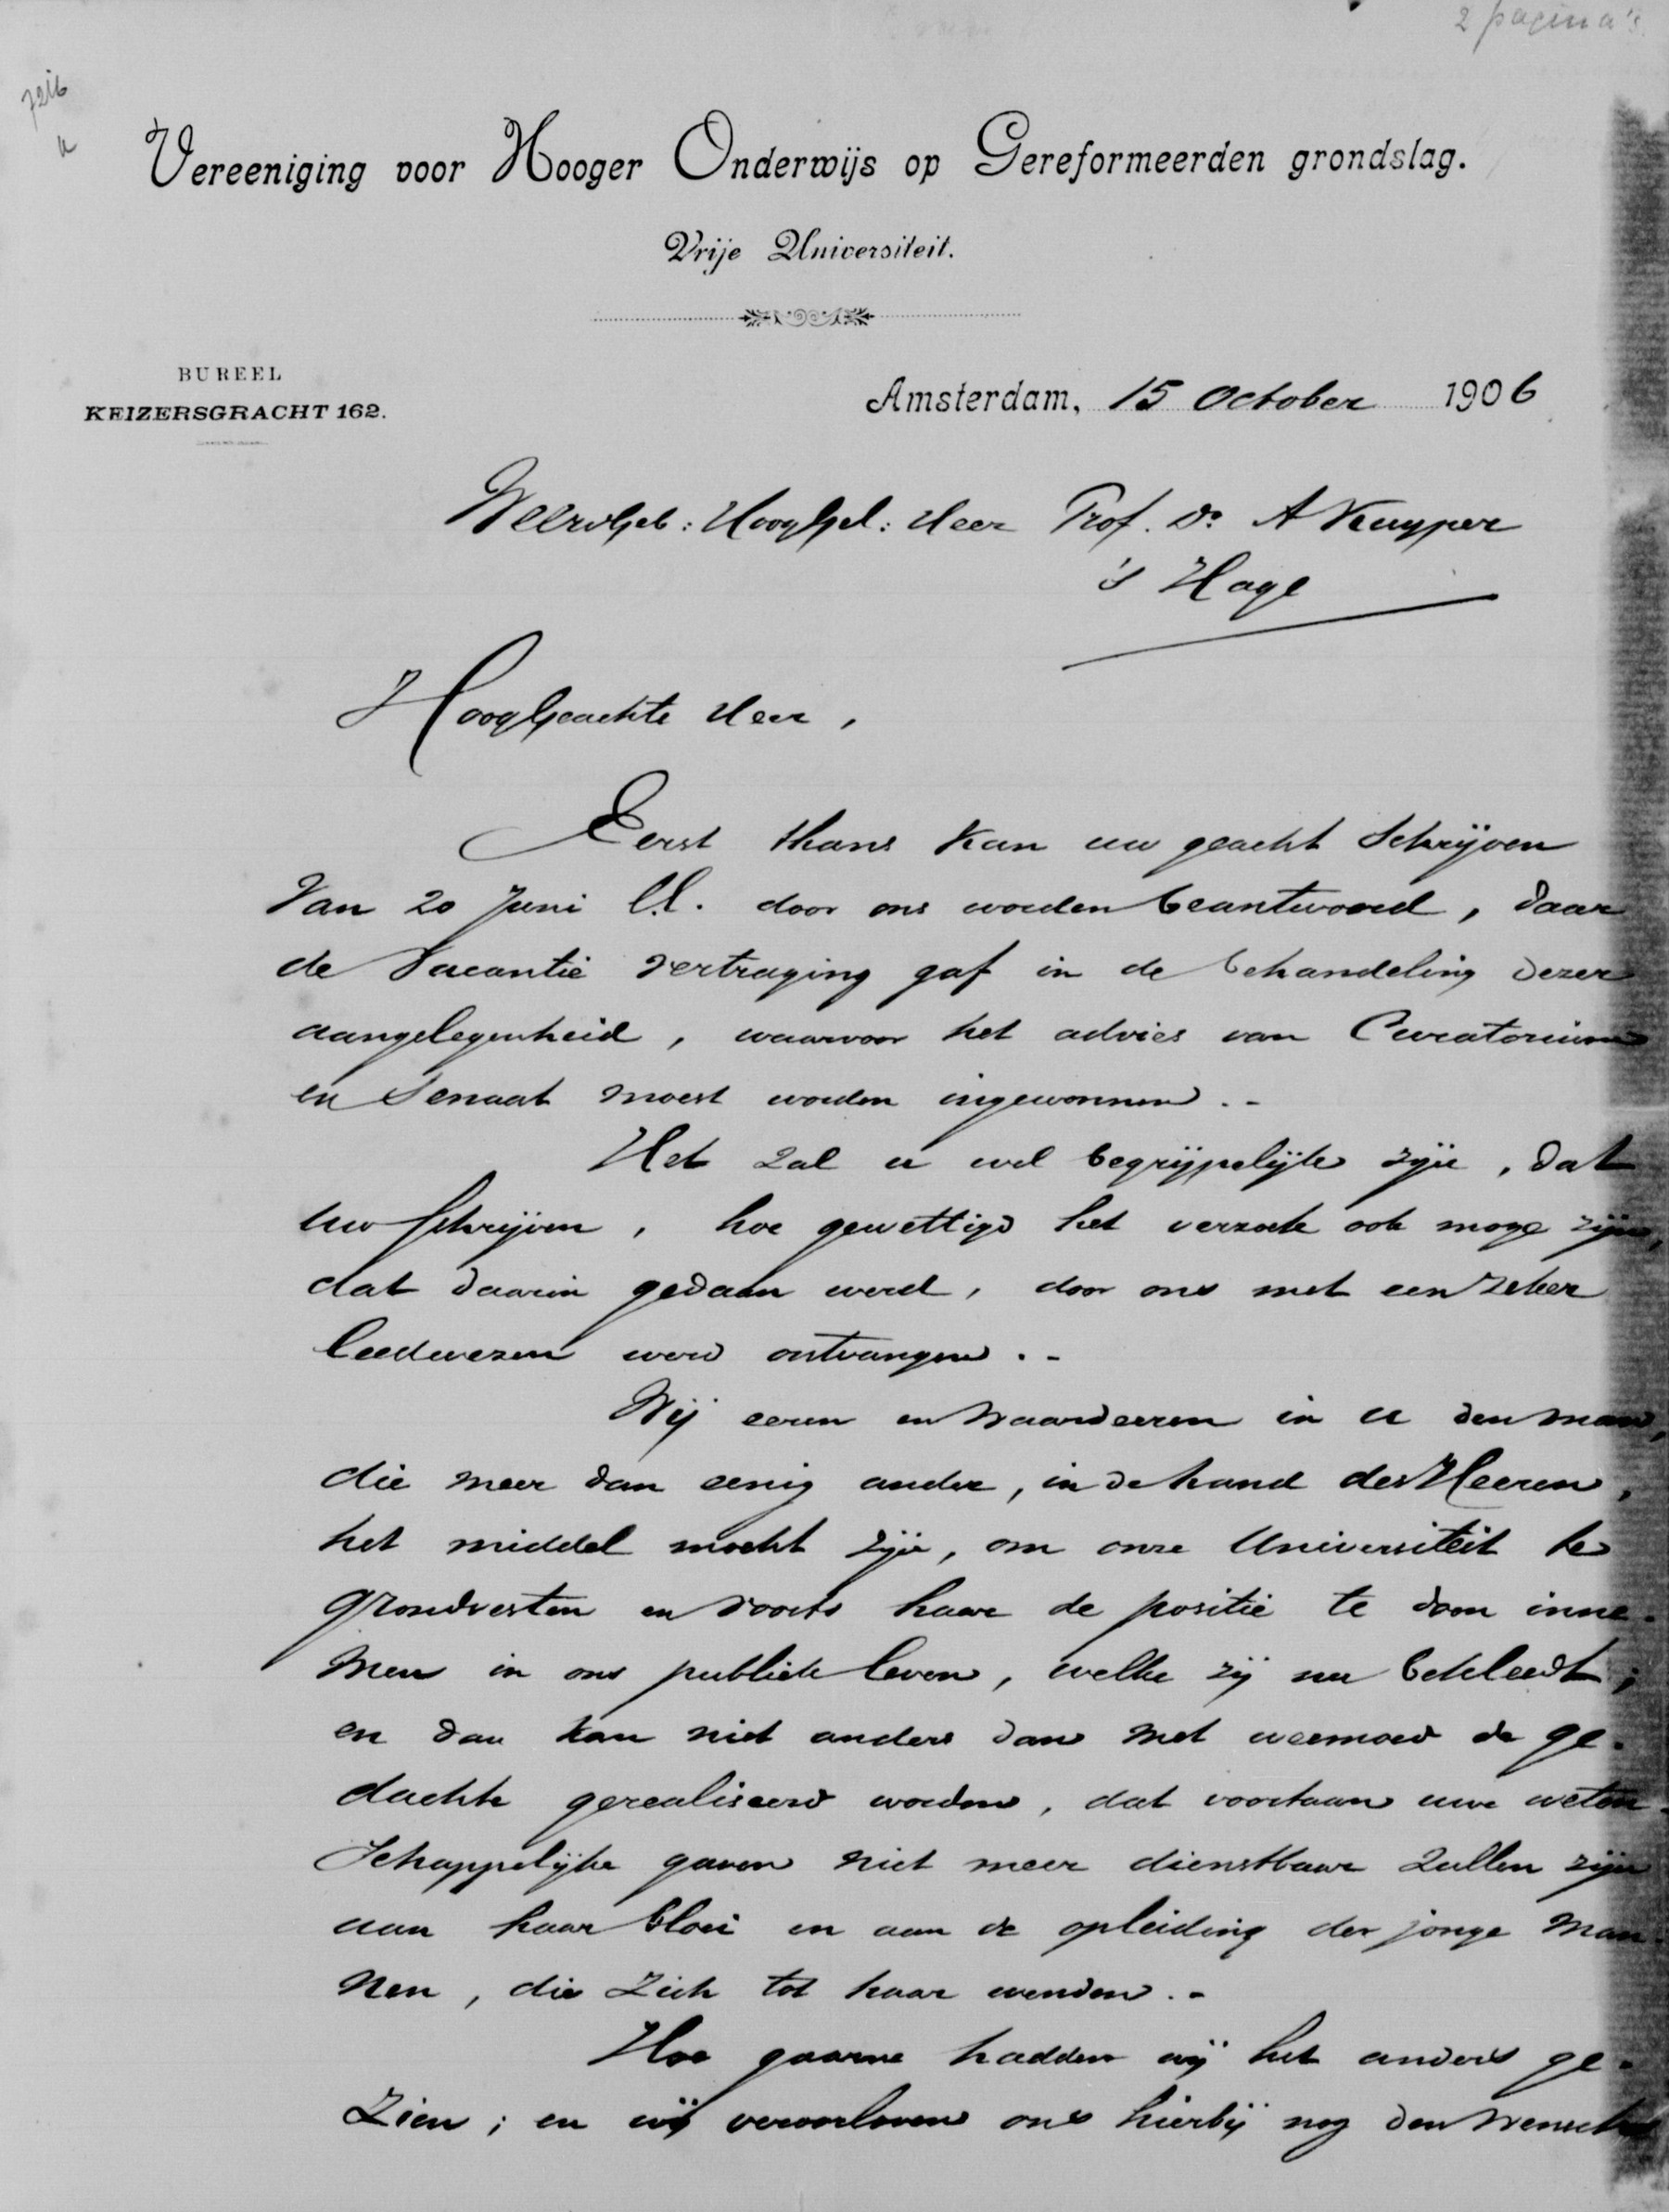 2 pagina's
7216
Vereeniging voor Hooger Onderwijs op Gereformeerden grondslag.
Vrije Universiteit.
BUREEL
KEIZERSGRACHT 162.
Amsterdam, 15 October 1906
WelEdGeb: HoogGel: Heer Prof. Dr A Kuyper
's Hage
HoogGeachte Heer,
Eerst thans kan uw geacht schrijven
van 20 Juni l.l. door ons worden beantwoord, daar
de Vacantie vertraging gaf in de behandeling dezer
aangelegenheid, waarvoor het advies van Curatorium
en Senaat moest worden ingewonnen.-
Het zal u wel begrijpelijk zijn, dat
uw schrijven, hoe gewettigd het verzoek ook moge zijn,
dat daarin gedaan werd, door ons met een zeker
leedwezen werd ontvangen.-
Wij eeren en waardeeren in U den man,
die meer dan eenig ander, in de hand des Heeren,
het middel mocht zijn, om onze Universiteit te
grondvesten en voorts haar de positie te doen inne-
men in ons publiek leven, welke zij nu bekleedt;
en dan kan niet anders dan met weemoed de ge-
dachte gerealiseerd worden, dat voortaan uwe weten-
schappelijke gaven niet meer dienstbaar zullen zijn
aan haar bloei en aan de opleiding der jonge man-
nen, die zich tot haar wenden.-
Hoe gaarne hadden wij het anders ge-
zien; en wij veroorloven ons hierbij nog den wensch